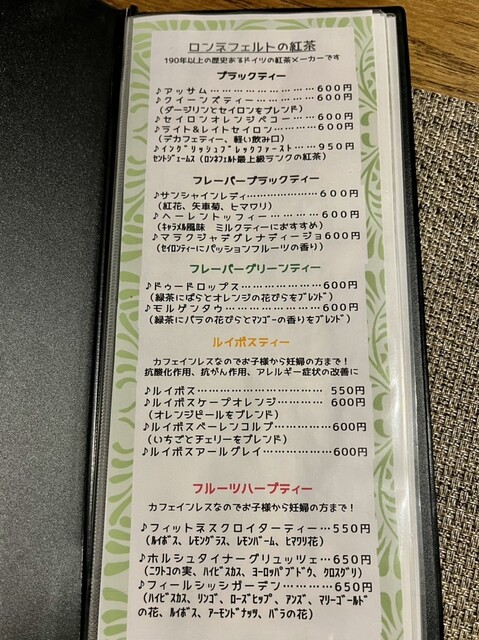 ロンネフェルトの紅茶
190年以上の歴史あるドイツの紅茶メーカーです
ブラックティー
♪アッサム………………………600円
♪クイーンズティー……………600円
(ダージリンとセイロンをブレンド)
♪セイロンオレンジペコー…600円
♪ライト&レイトセイロン……600円
(デカフェティー、軽い飲み口)
♪イングリッシュブレックファースト…950円
セントジェームス(ロンネフェルト最上級ランクの紅茶)
フレーバーブラックティー
♪サンシャインレディ…………600円
(紅花、矢車菊、ヒマワリ)
♪ヘーレントッフィー…………600円
(キャラメル風味 ミルクティーにおすすめ)
♪マラクジャデグレナディージョ600円
(セイロンティーにパッションフルーツの香り)
フレーバーグリーンティー
♪ドゥードロップス……………600円
(緑茶にばらとオレンジの花びらをブレンド)
♪モルゲンタウ…………………600円
(緑茶にバラの花びらとマンゴーの香りをブレンド)
ルイボスティー
カフェインレスなのでお子様から妊婦の方まで！
抗酸化作用、抗がん作用、アレルギー症状の改善に
♪ルイボス………………………550円
♪ルイボスケープオレンジ……600円
(オレンジピールをブレンド)
♪ルイボスベーレンコルプ……600円
(いちごとチェリーをブレンド)
♪ルイボスアールグレイ………600円
フルーツハーブティー
カフェインレスなのでお子様から妊婦の方まで！
♪フィットネスクロイターティー…550円
(ルイボス、レモングラス、レモンバーム、ヒマワリ花)
♪ホルシュタイナーグリュッツェ…650円
(ニワトコの実、ハイビスカス、ヨーロッパブドウ、クロスグリ)
♪フィールシッシガーデン………650円
(ハイビスカス、リンゴ、ローズヒップ、アンズ、マリーゴールド
の花、ルイボス、アーモンドナッツ、バラの花)